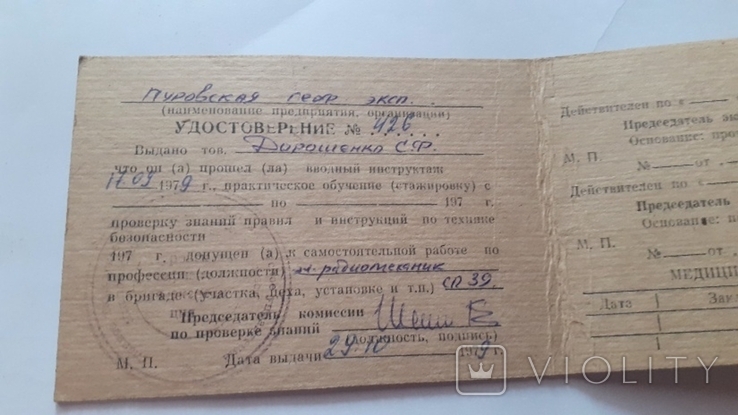 Пуровская геор эксп.
(наименование предприятия, организации)
УДОСТОВЕРЕНИЕ № 426
Выдано тов. Дорошенко С.Ф.
что он (а) прошел (ла) вводный инструктаж
17.09 1979 г., практическое обучение (стажировку) с
по 197 г.
проверку знаний правил и инструкций по технике
безопасности
197 г. допущен (а) к самостоятельной работе по
профессии (должности) радиотехник
в бригаде (участка, цеха, установке и т.п.) СП 39.
Председатель комиссии
по проверке знаний
(должность, подпись)
М. П. Дата выдачи 29.10 1979 г.
Действителен по «
Председатель эк
Основание: про
М. П. № от
Действителен по «
Председатель
Основание:
М. П. № от
МЕДИЦИ
Дата Закл
VIOLITY